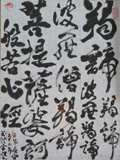 羯諦羯諦波羅羯諦
波羅僧羯諦
菩提薩婆訶
般若心經